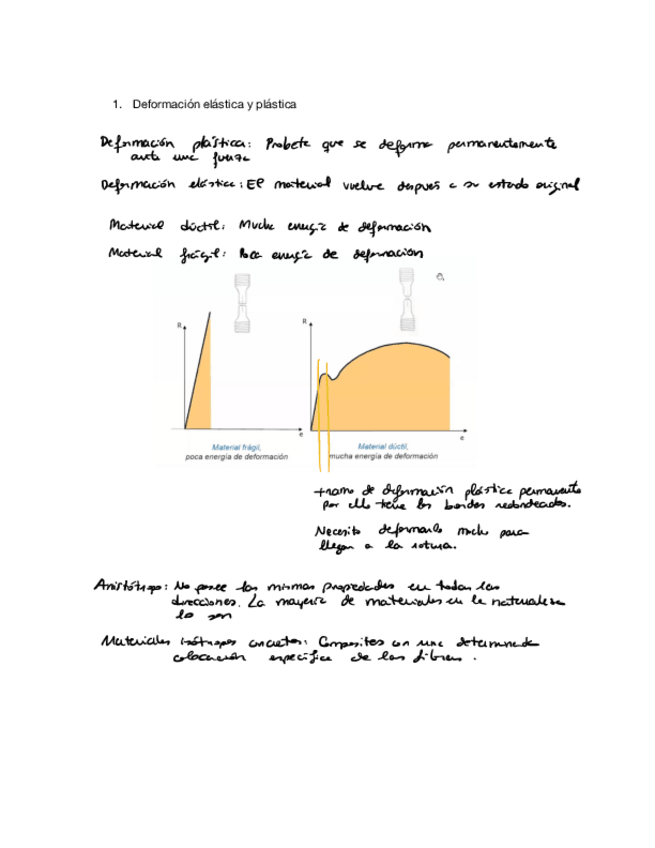 1. Deformación elástica y plástica
Deformación plástica: Probeta que se deforma permanentemente
ante una fuerza
Deformación elástica: El material vuelve después a su estado original
Material dúctil: Mucha energía de deformación
Material frágil: Poca energía de deformación
R
e
Material frágil,
poca energía de deformación
R
e
Material dúctil,
mucha energía de deformación
tramo de deformación plástica permanente
por ello tiene los bordes redondeados.
Necesito deformarlo mucho para
llegar a la rotura.
Anisótropo: No posee las mismas propiedades en todas las
direcciones. La mayoría de materiales en la naturaleza
lo son
Materiales isótropos concretos: Composites con una determinada
colocación específica de las fibras.